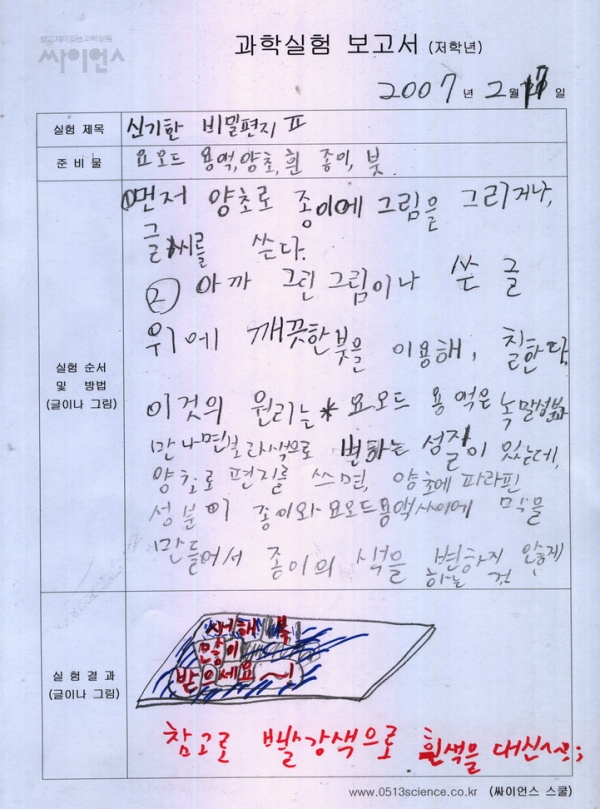 싸이언스
과학실험 보고서 (저학년)
2007 년 2 월 17 일
실험 제목 신기한 비밀편지 Ⅱ
준 비 물 요오드 용액, 양초, 흰 종이, 붓.
실험 순서
및 방법
(글이나 그림)
①먼저 양초로 종이에 그림을 그리거나,
글씨를 쓴다.
② 아까 그린 그림이나 쓴 글
위에 깨끗한 붓을 이용해, 칠한다.
이것의 원리는 * 요오드 용액은 녹말성분
만나면 보라색으로 변하는 성질이 있는데,
양초로 편지를 쓰면, 양초에 파라핀
성분이 종이와 요오드용액사이에 막을
만들어서 종이의 색을 변하지 않게
하는 것
실 험 결 과
(글이나 그림)
새해 복
많이
받으세요~!
참고로 빨강색으로 흰색을 대신^^;
www.0513science.co.kr (싸이언스 스쿨)